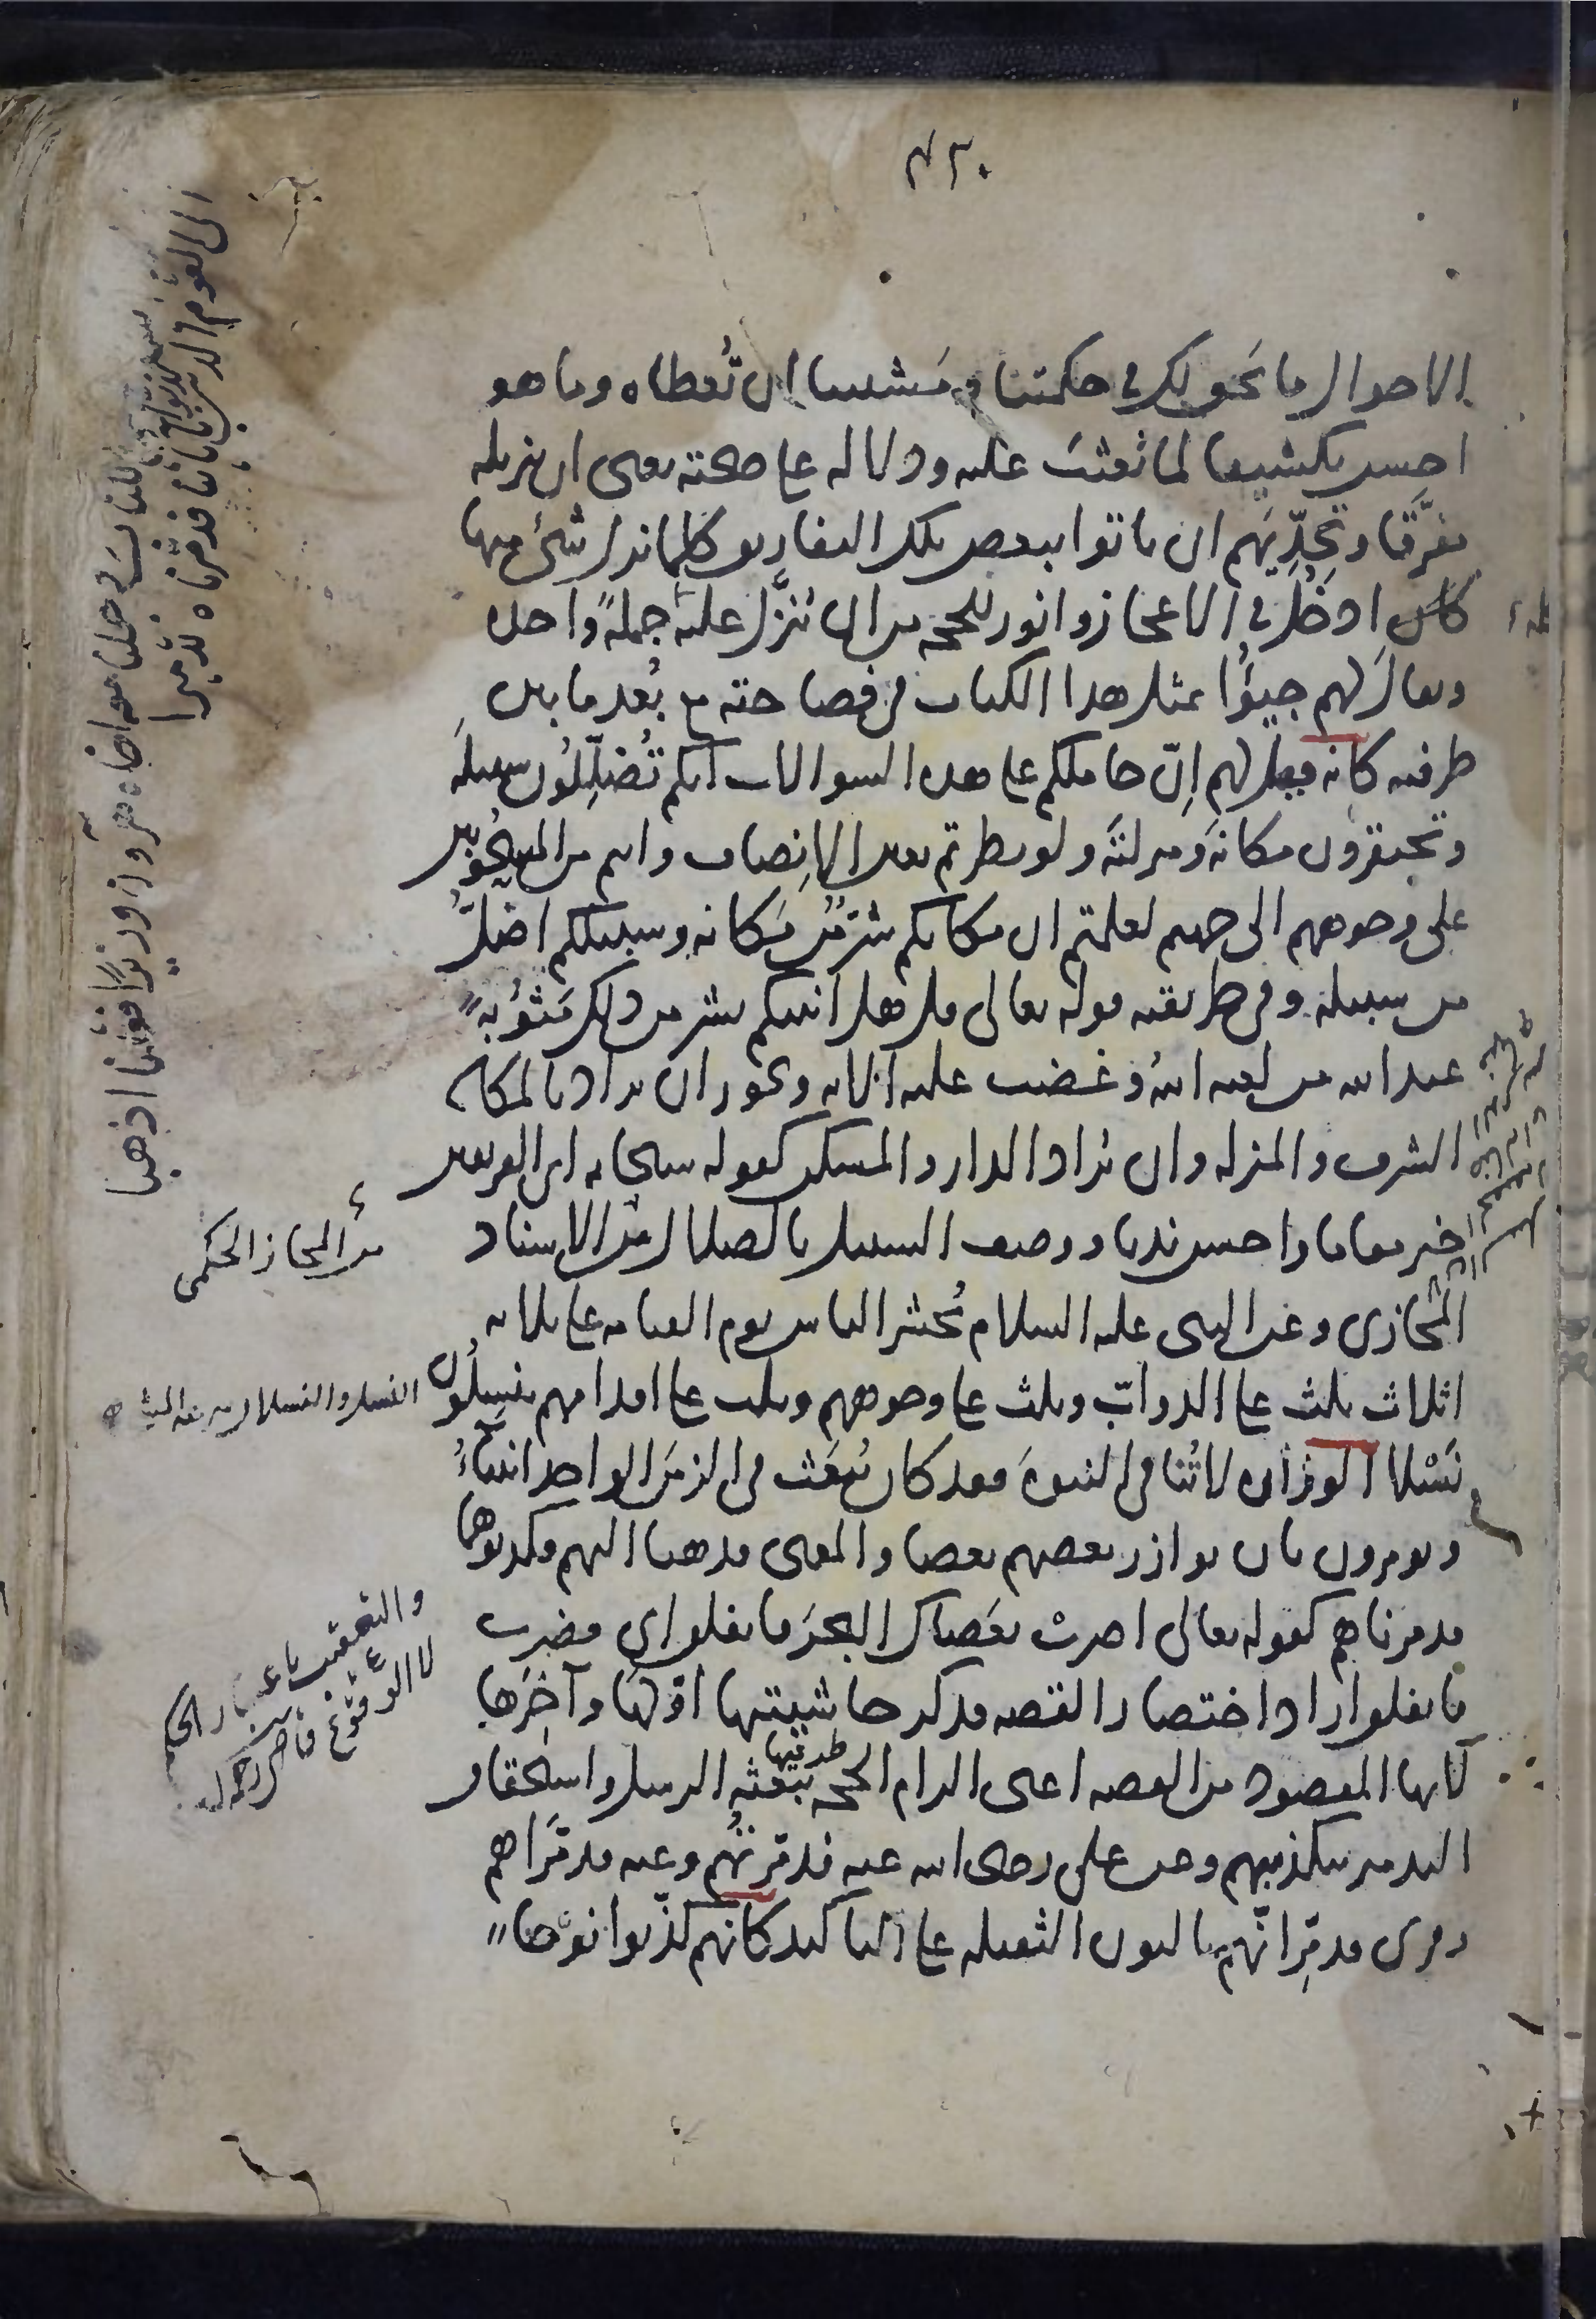 ٤٢٠
الاحوال ما يحق لك في حكمتنا ومشيتنا ان تُعطاه وما هو
احسن تكشيفا لما بُعثتَ عليه ودلالة على صحته يعنى ان تنزيله
مفرَّقا وتحدّيَهم ان ياتوا ببعض تلك التفاريق كلما نزل شىء منها
كان ادخل في الاعجاز وانور للحجة من ان يُنزَّل عليه جملةً واحدة
ويقال لهم جيؤُا بمثل هذا الكتاب في فصاحته مع بُعد ما بين
طرفيه كانه قيل لهم اِنّ حاملكم على هذه السوالات انكم تُضلِّلُون سبيلَه
وتحتقرون مكانه ومنزلته ولو نظرتم بعين الاِنصاف وانتم من المسحُوبين
على وجوههم الى جهنم لعلمتم ان مكانكم شرّ من مكانه وسبيلكم اضلُّ
من سبيله وفى طريقته قوله تعالى قل هل انبيكم بشر من ذلك مَثوُبةً
عند الله من لعنه اللهُ وغضب عليه الاية ويجوز ان يراد بالمكان
الشرف والمنزلة وان يُراد الدار والمسكن كقوله سبحانه اى الفريقين
خير مقاما واحسن نديا ووصف السبيل بالضلال من الاسناد
المجازى وعن النبى عليه السلام يُحشر الناس يوم القيامة على ثلاثة
اثلاث ثلث على الدوابّ وثلث على وجوههم وثلث على اقدامهم ينسِلُون
نَسْلا الوزارة لا تُنا فى النبوة فقد كان يُبعَث فى الزمن الواحد انبياءُ
ويومرون بان يوازر بعضهم بعضا والمعنى فذهبا اليهم فكذبوهما
فدمرناهم كقوله تعالى اضربْ بعَصاك البحرَ فانفلق اى فضرب
فانفلق اراد اختصار القصة فذكر حاشيتيها اوّلَها وآخِرَها
لانهما المقصود من القصة اعنى الزام الحجة ببعثة الرسل واستحقاق
طرفيها
التدمير بتكذيبهم وعن على رضى الله عنه فدمّرتُهم وعنه فدمّراهم
وقرى فدمِّرانِّهم بالنون الثقيلة على التاكيد كانهم كذّبوا نوحا
الكتابَ وجعلنا معه اخاه هرون وزيرا فقلنا اذهبا
الى القوم الذين كذّبوا باياتنا فدمّرناه تدميرا
من المجاز الحكمى
والتعقيب باعتبار الحكم
لا الوقوع قاضى رحمه الله